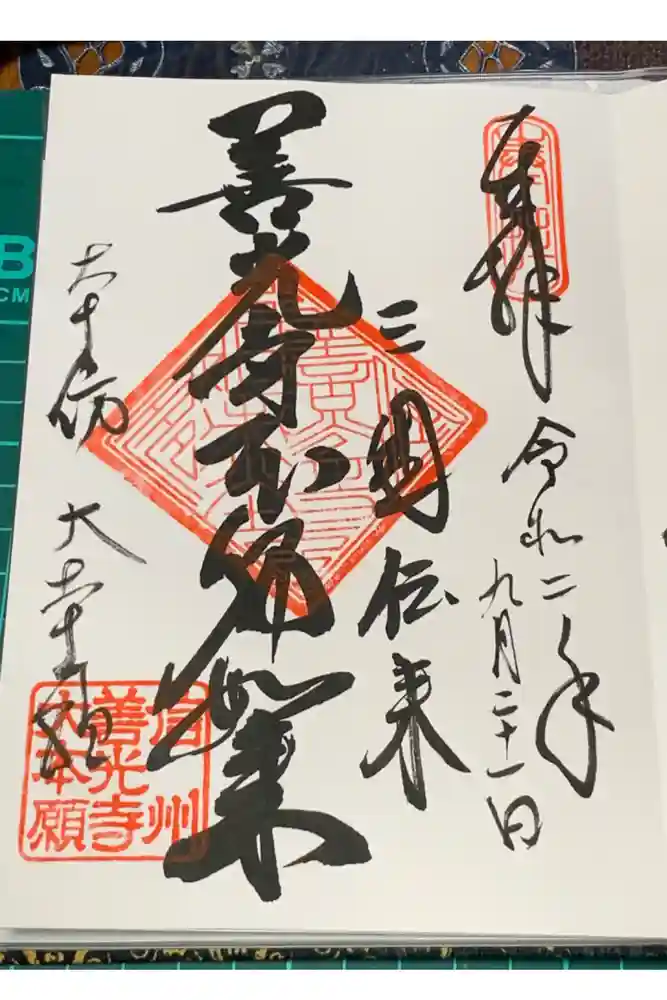 奉拝
令和二年
九月二十一日
三国伝来
善光寺本師如来
本坊 大本願
信州
善光寺
大本願
B
CM